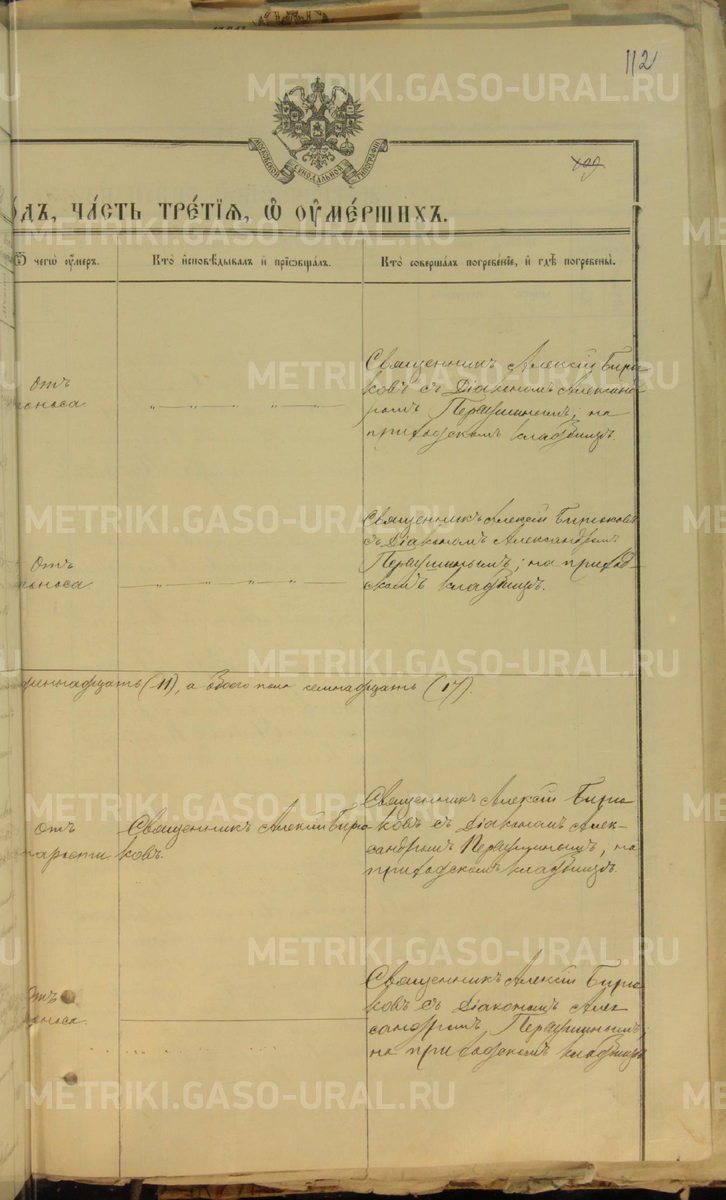 112
МОСКОВСКОЙ СИНОДАЛЬНОЙ ТИПОГРАФІИ
109
ОДЪ, ЧАСТЬ ТРЕТІЯ, Ѿ ОУМЕРШИХЪ.
Ѿ чегѡ оумеръ.
Кто исповѣдывалъ и пріѡбщалъ.
Кто совершалъ погребеніе, и гдѣ погребены.
Отъ
поноса
Священникъ Алексій Бирю
ковъ съ Діакономъ Александ
ромъ Первушинымъ; на
приходскомъ кладбищѣ.
Отъ
поноса
Священникъ Алексій Бирюковъ
съ Діакономъ Александромъ
Первушинымъ; на приход-
скомъ кладбищѣ.
диннадцать (11), а обоего пола семнадцать (17).
Отъ
старости
Священникъ Алексій Бирю
ковъ.
Священникъ Алексій Бирю
ковъ съ Діакономъ Алек-
сандромъ Первушинымъ, на
приходскомъ кладбищѣ.
Отъ
поноса.
Священникъ Алексій Бирю
ковъ съ Діакономъ Алек
сандромъ Первушинымъ;
на приходскомъ кладбищѣ
METRIKI.GASO-URAL.RU